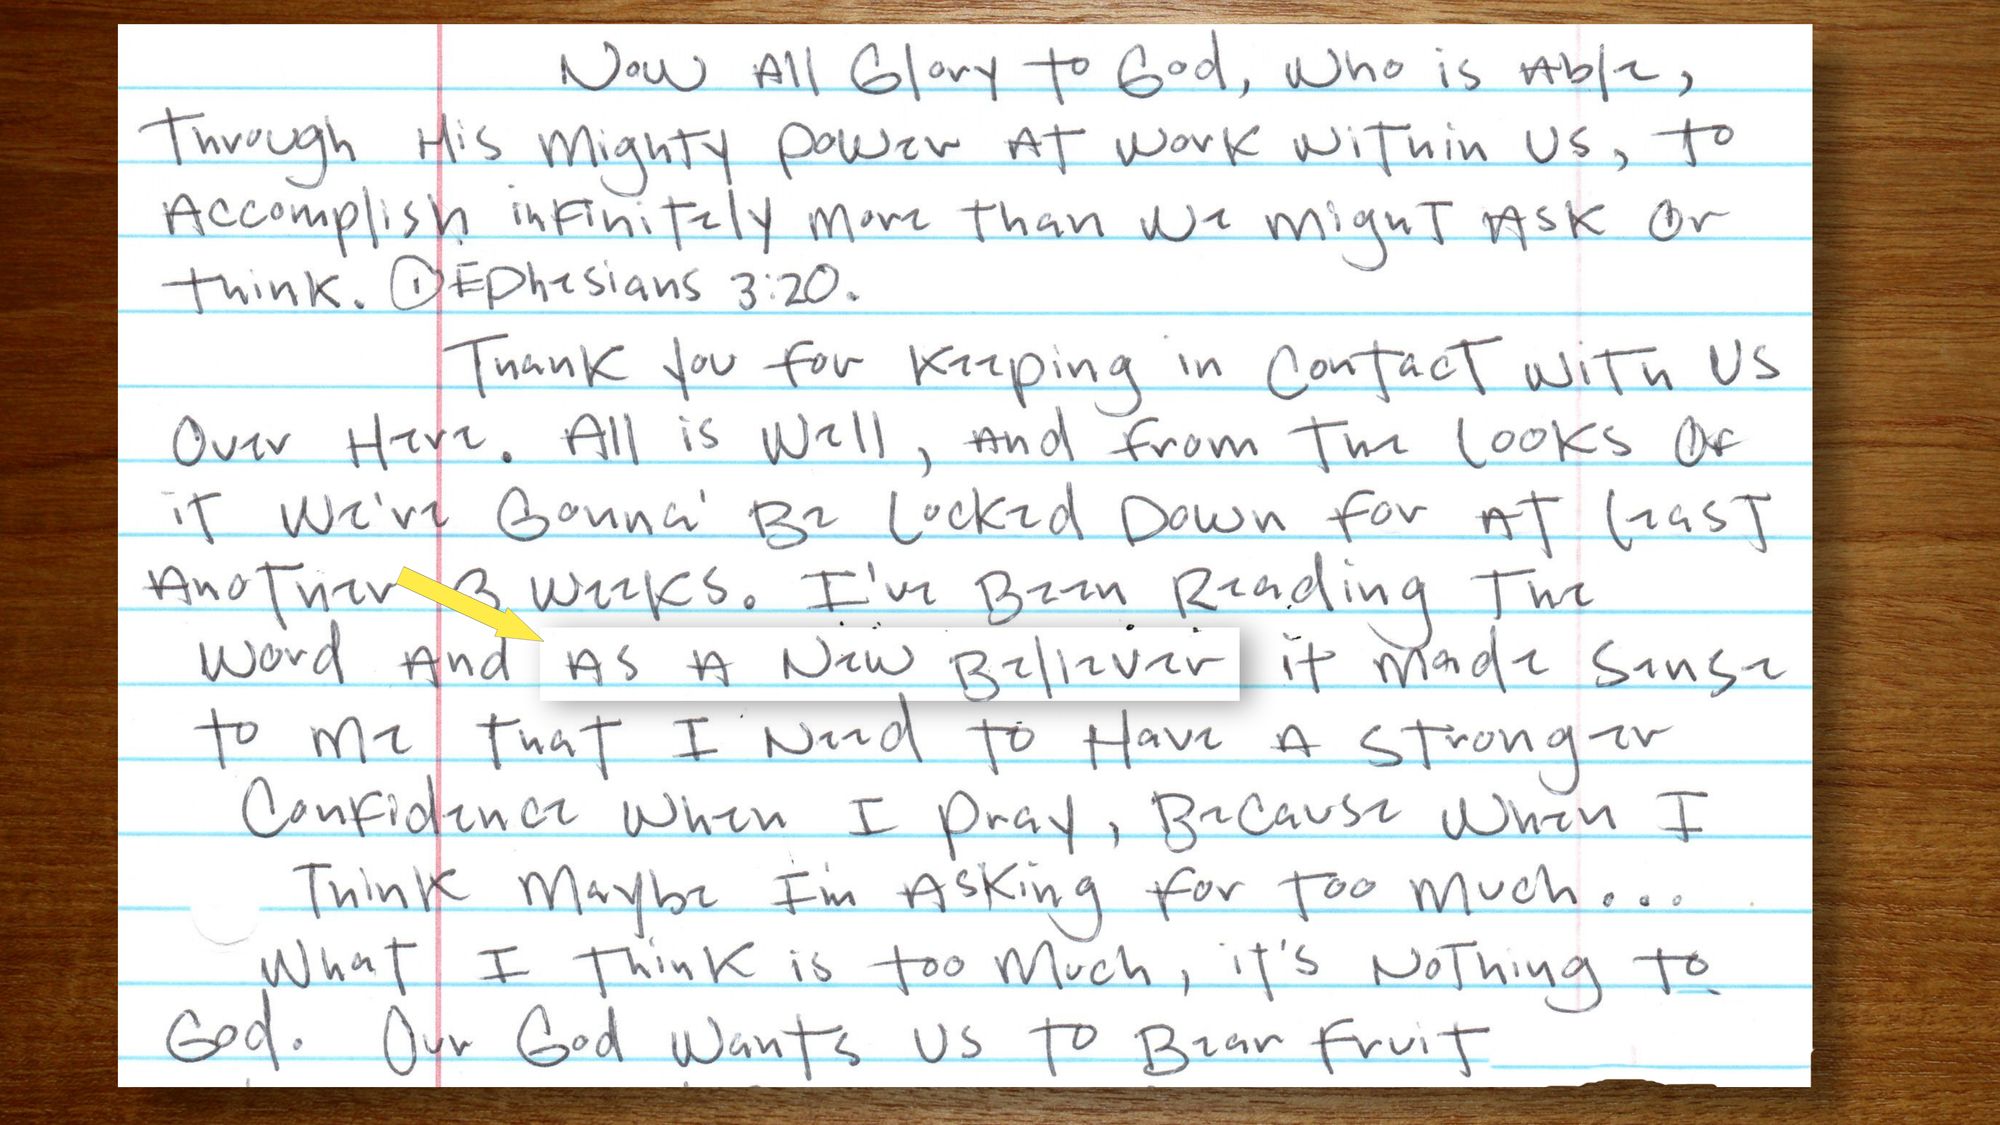 Now All Glory to God, Who is Able,
Through His Mighty Power At Work Within Us, to
Accomplish infinitely More Than We Might Ask Or
think. ① Ephesians 3:20.
Thank you for Keeping in Contact With Us
Over Here. All is Well, And from The Looks Of
it We've Gonna' Be Locked Down for At least
Another 3 Weeks. I've Been Reading The
Word And As A New Believer it Made Sense
to Me that I Need to Have A Stronger
Confidence When I pray, Because When I
Think Maybe I'm Asking for Too Much...
What I Think is too Much, it's Nothing to
God. Our God Wants Us To Bear Fruit